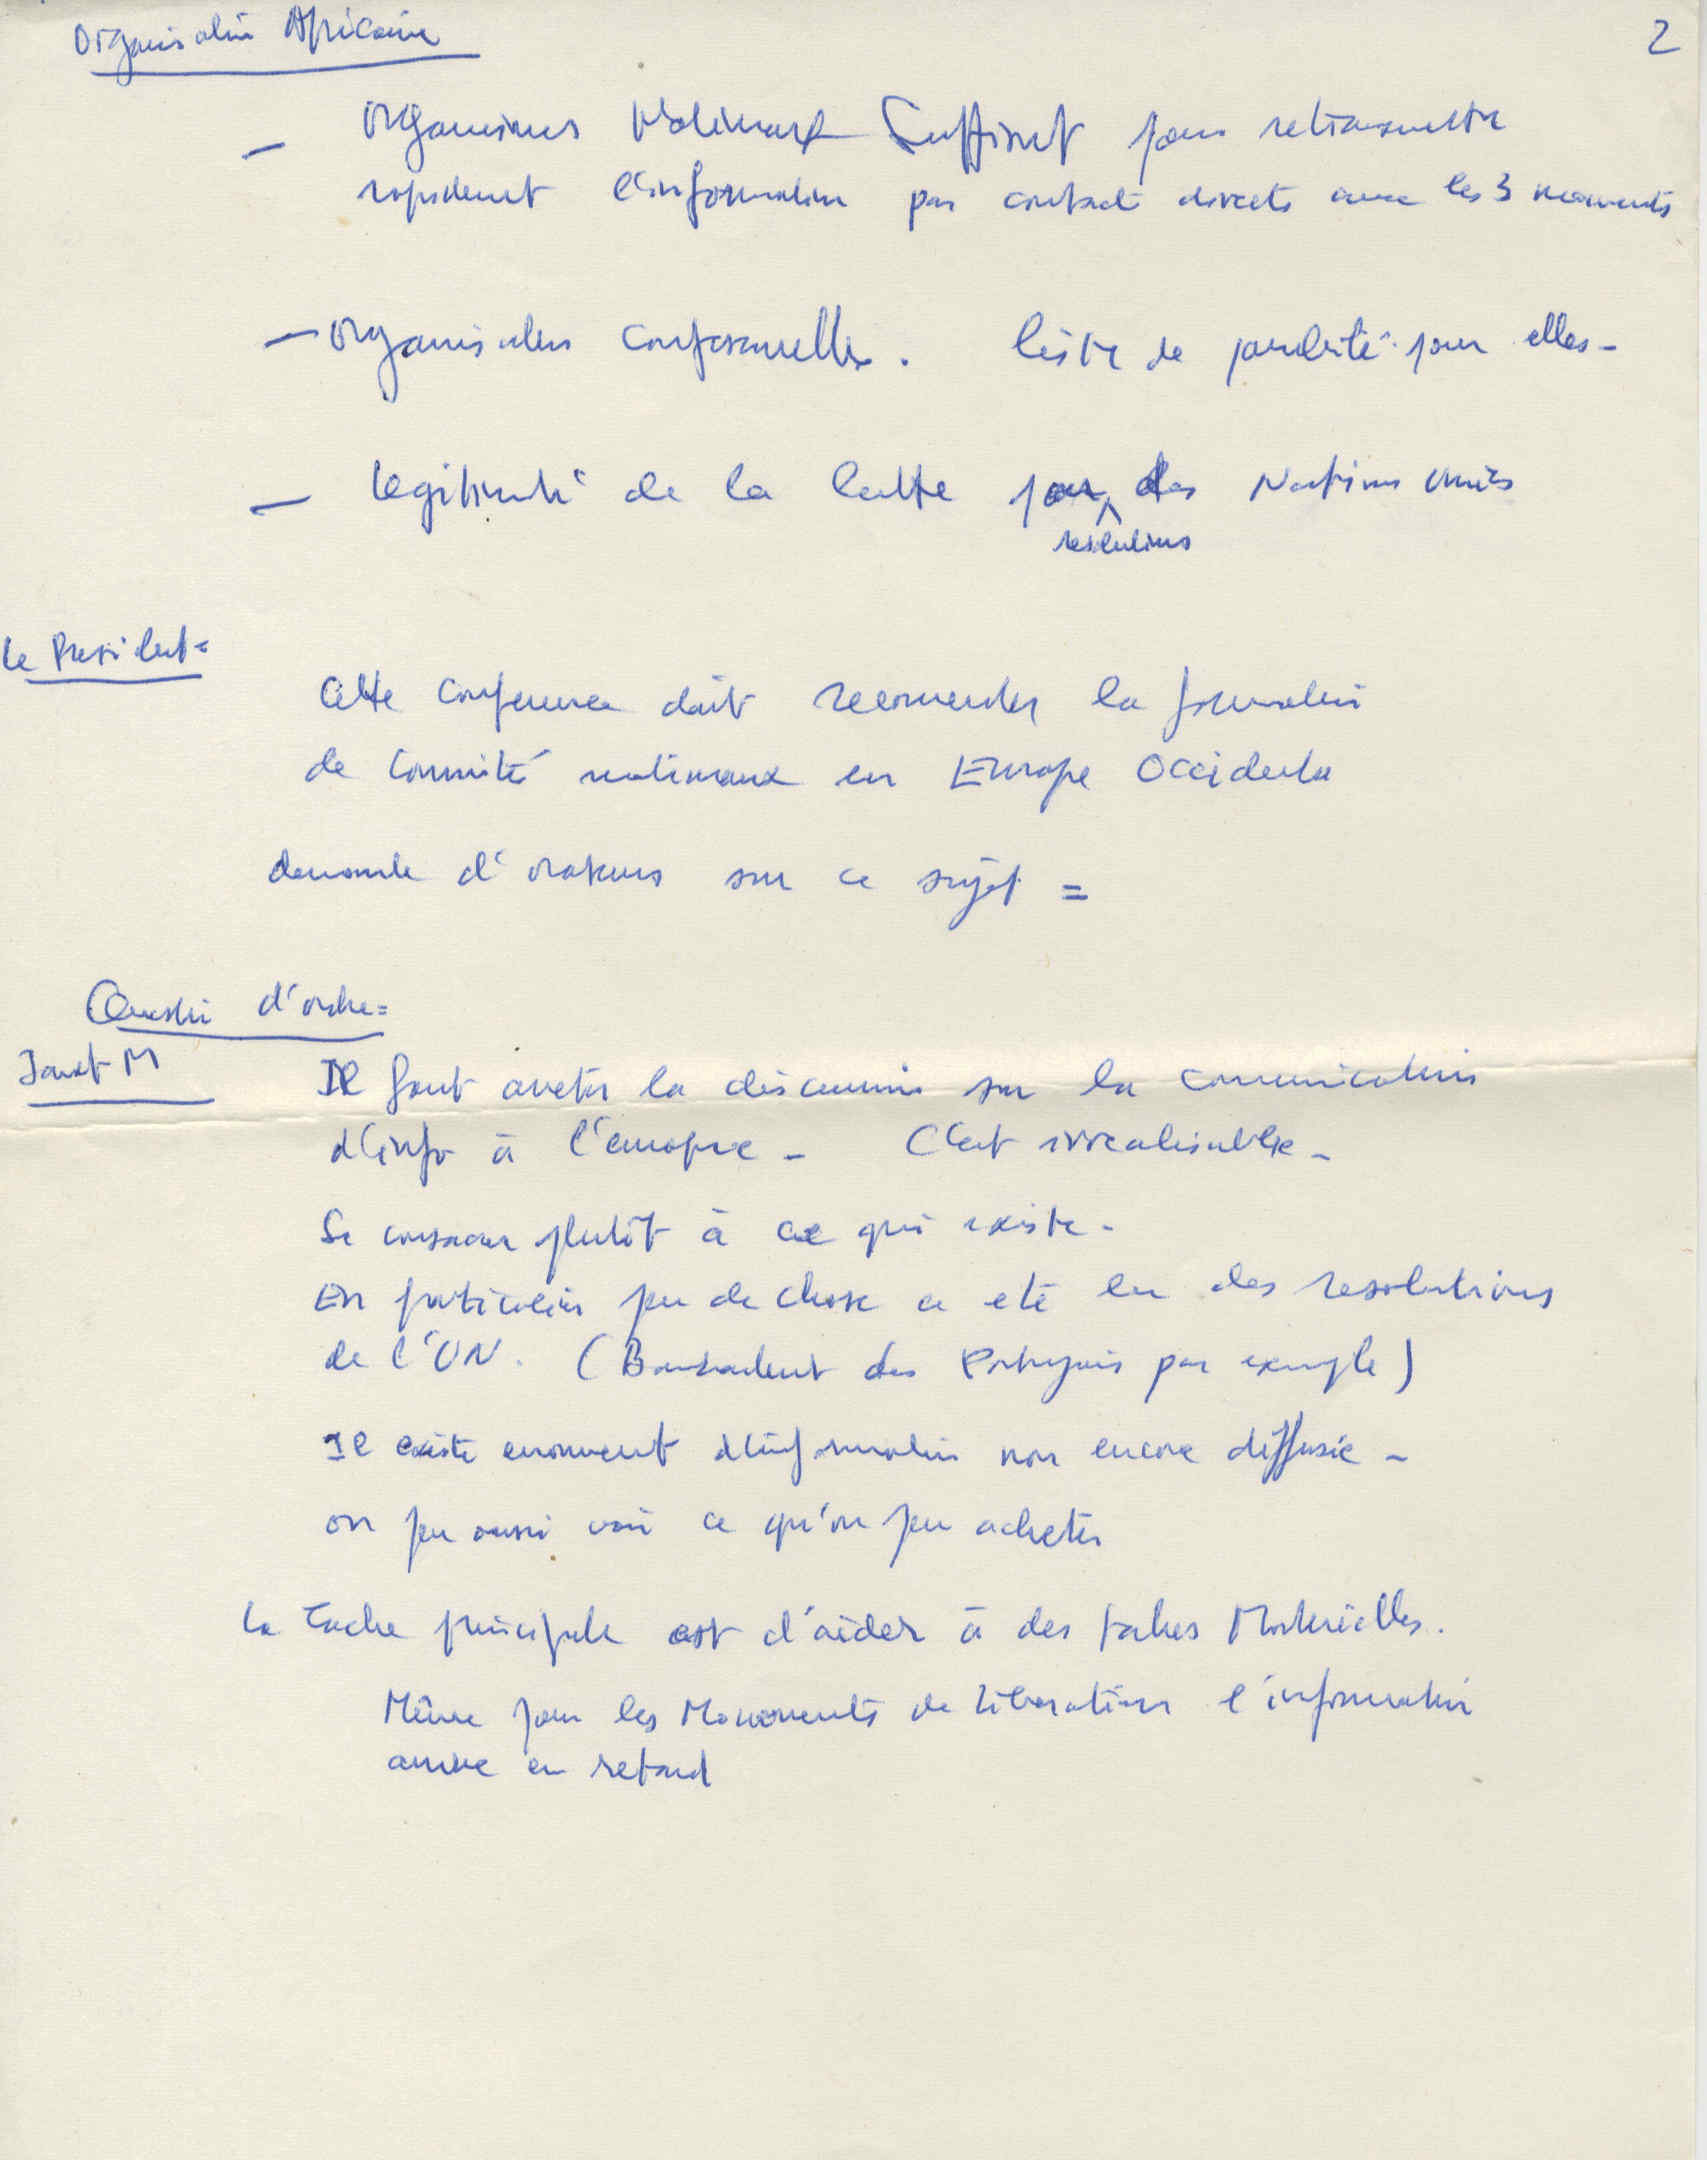 Organisation Africaine
2
— Organismes Nationaux Suffisent pour retransmettre
rapidement l'information par contacts directs avec les 3 mouvements
— Organisations confessionnelles. liste de priorité pour elles -
— Legitimité de la lutte par des Nations Unies
resolutions
Le President =
Cette Conference doit recommender la formation
de Comités nationaux en Europe Occidentale
demande d'orateurs sur ce sujet =
Question d'ordre =
Janet M
Il faut arreter la discussion sur la communication
d'info à l'europe - C'est irrealisable -
Se consacrer plutôt à ce qui existe -
En particulier peu de chose a eté lu des resolutions
de l'UN. (Bombardement des Portugais par exemple)
Il existe enormement d'information non encore diffusée -
on peu aussi voir ce qu'on peu acheter
La Tache principale est d'aider à des taches Materielles.
Même pour les Mouvements de Liberation l'information
arrive en retard